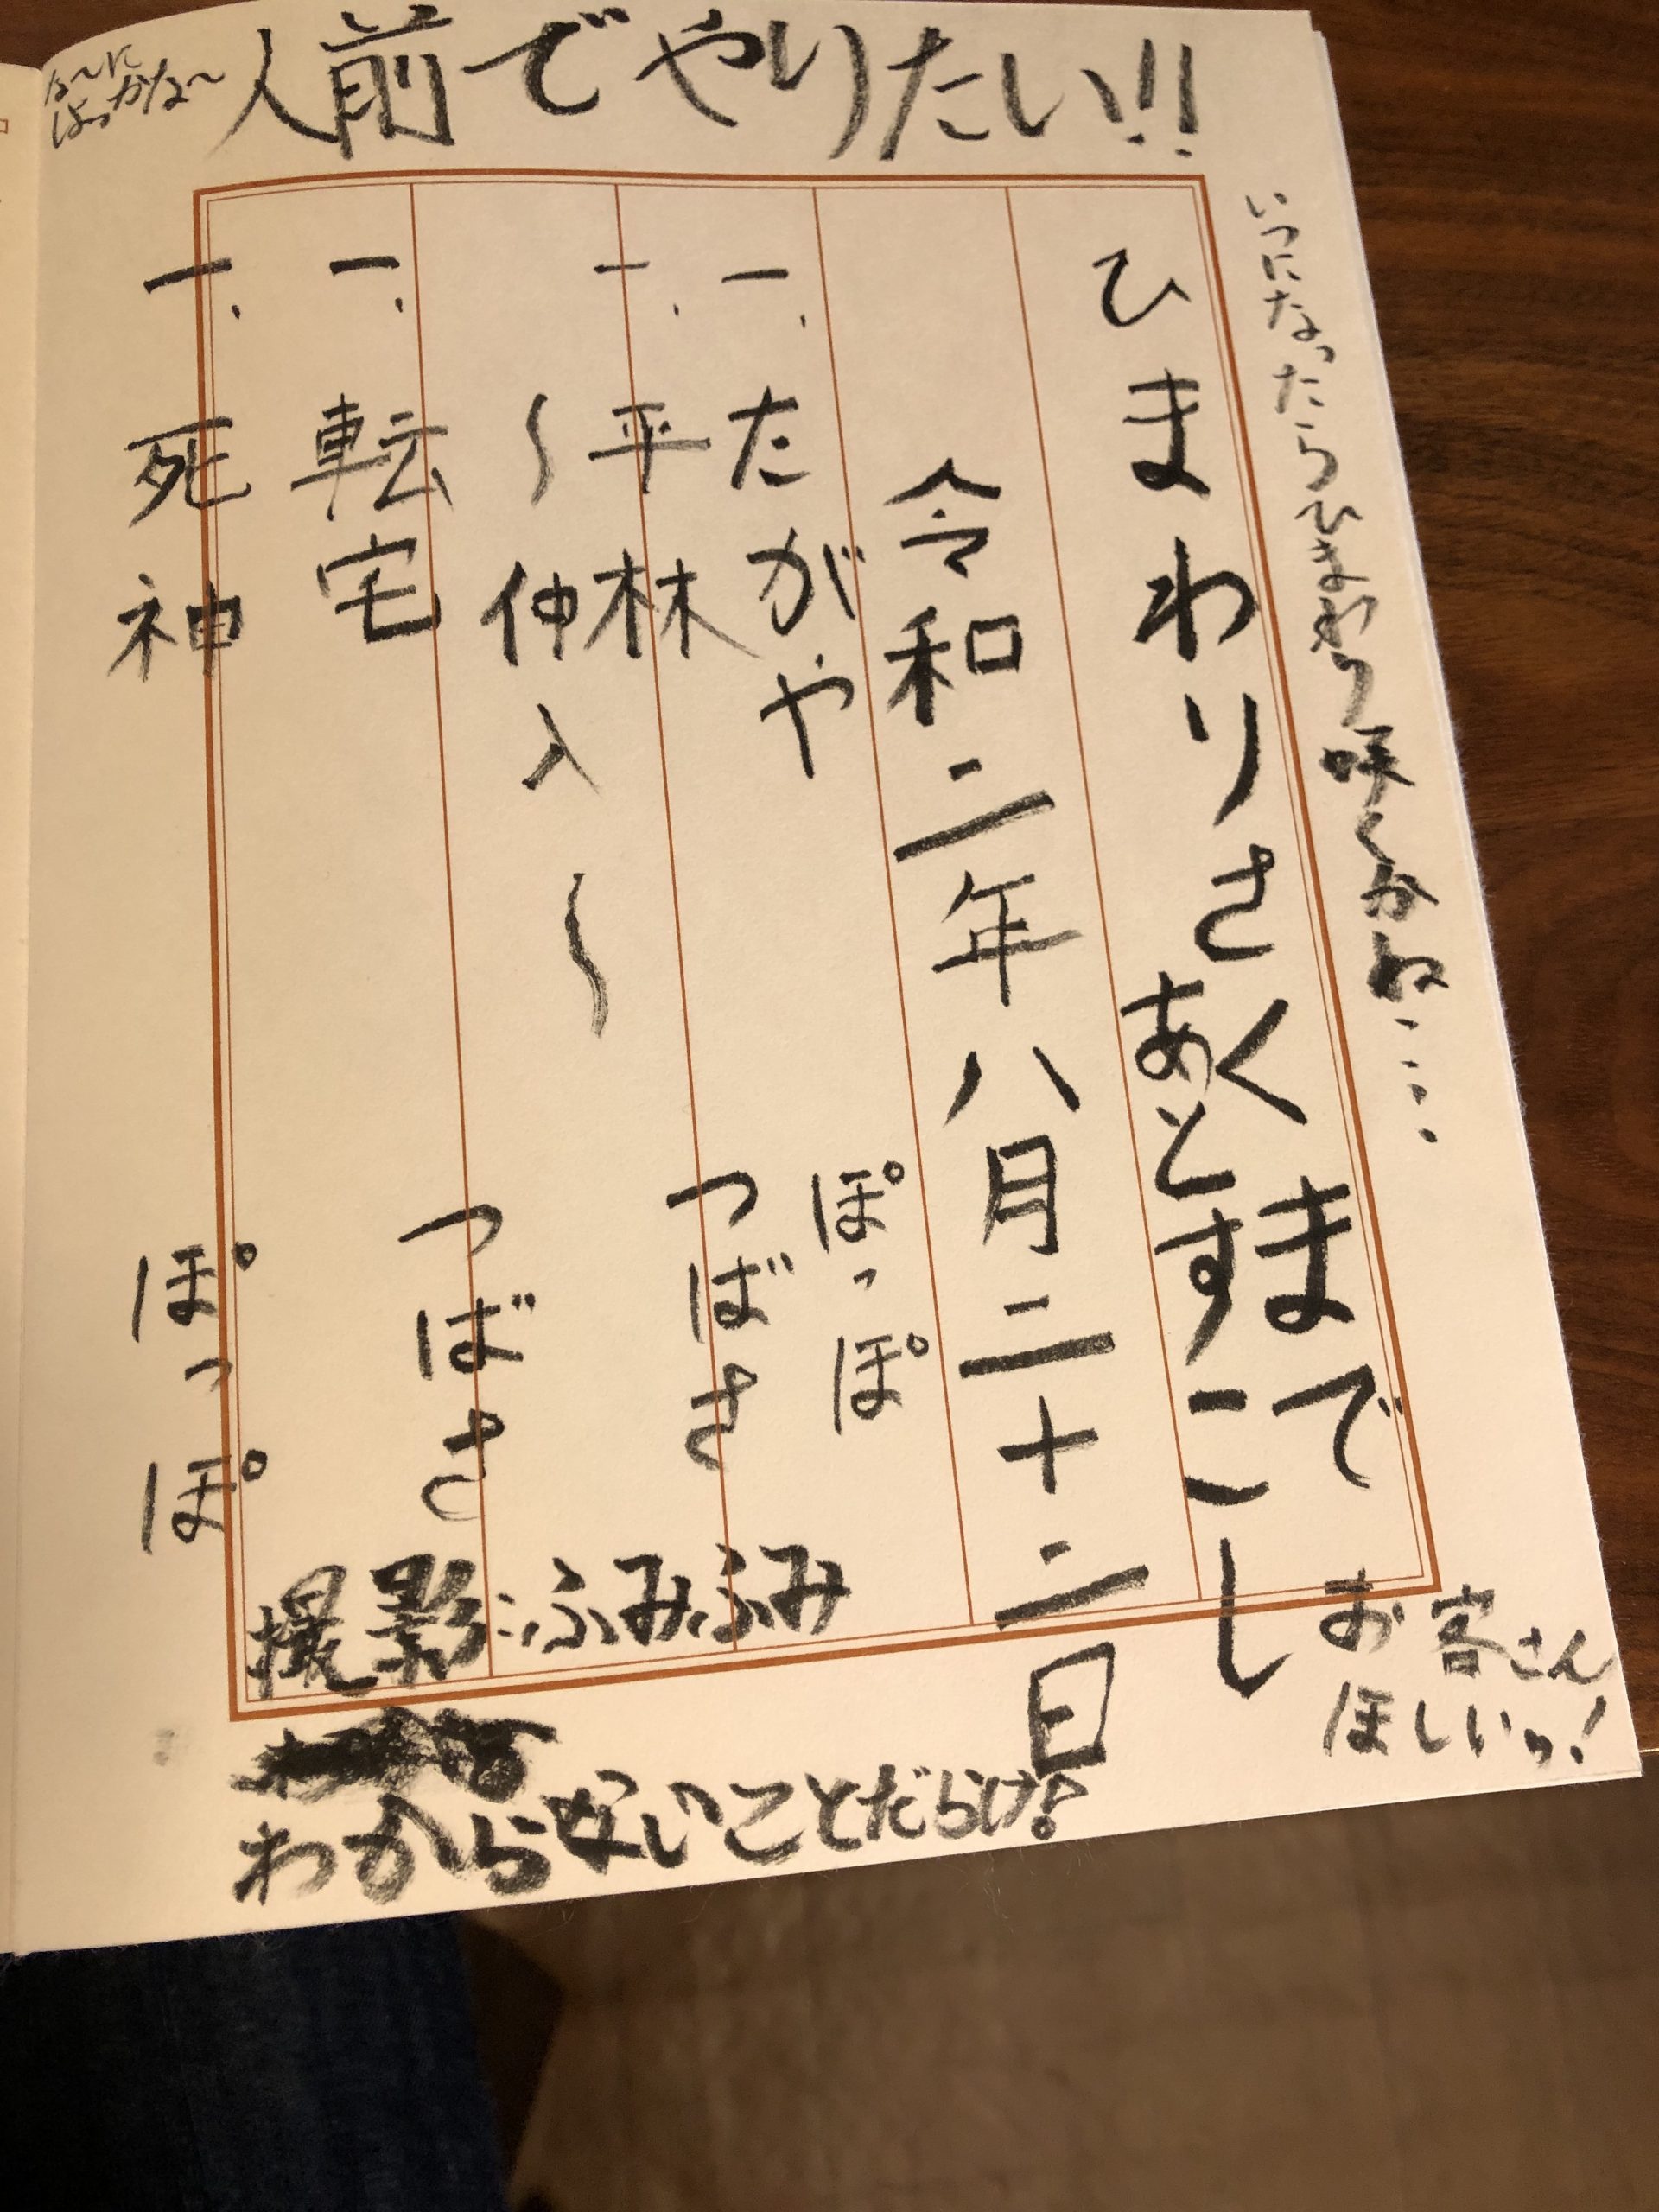 人前でやりたい!!
いつになったらひまわり咲くかね····
ひまわりさくまで
あとすこし
令和二年八月二十二日
一、たがや ぽっぽ
一、平林 つばさ
〜仲入〜
一、転宅 つばさ
一、死神 ぽっぽ
撮影:ふみふみ
お客さん
ほしいっ!
わからないことだらけ!